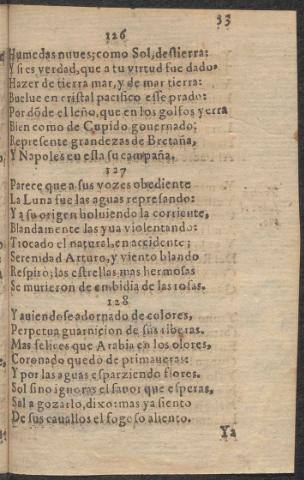 33
126
Humedas nuues; como Sol, destierra:
Y si es verdad, que a tu virtud fue dado
Hazer de tierra mar, y de mar tierra:
Buelue en cristal pacifico esse prado:
Por dõde el leño, que en los golfos yerra
Bien como de Cupido gouernado;
Represente grandezas de Bretaña,
Y Napoles en esta su campaña.
127
Parece que a sus vozes obediente
La Luna fue las aguas represando:
Y a su origen boluiendo la corriente,
Blandamente las yua violentando:
Trocado el natural, en accidente;
Serenidad Arturo, y viento blando
Respirò; las estrellas mas hermosas
Se murieron de embidia de las rosas.
128
Y auiendose adornado de colores,
Perpetua guarnicion de sus riberas.
Mas felices que Arabia en los olores,
Coronado quedò de primaueras:
Y por las aguas esparziendo flores.
Sol sino ignoras el fauor que esperas,
Sal a gozarlo, dixo: mas ya siento
De sus cauallos el fogoso aliento.
Ya